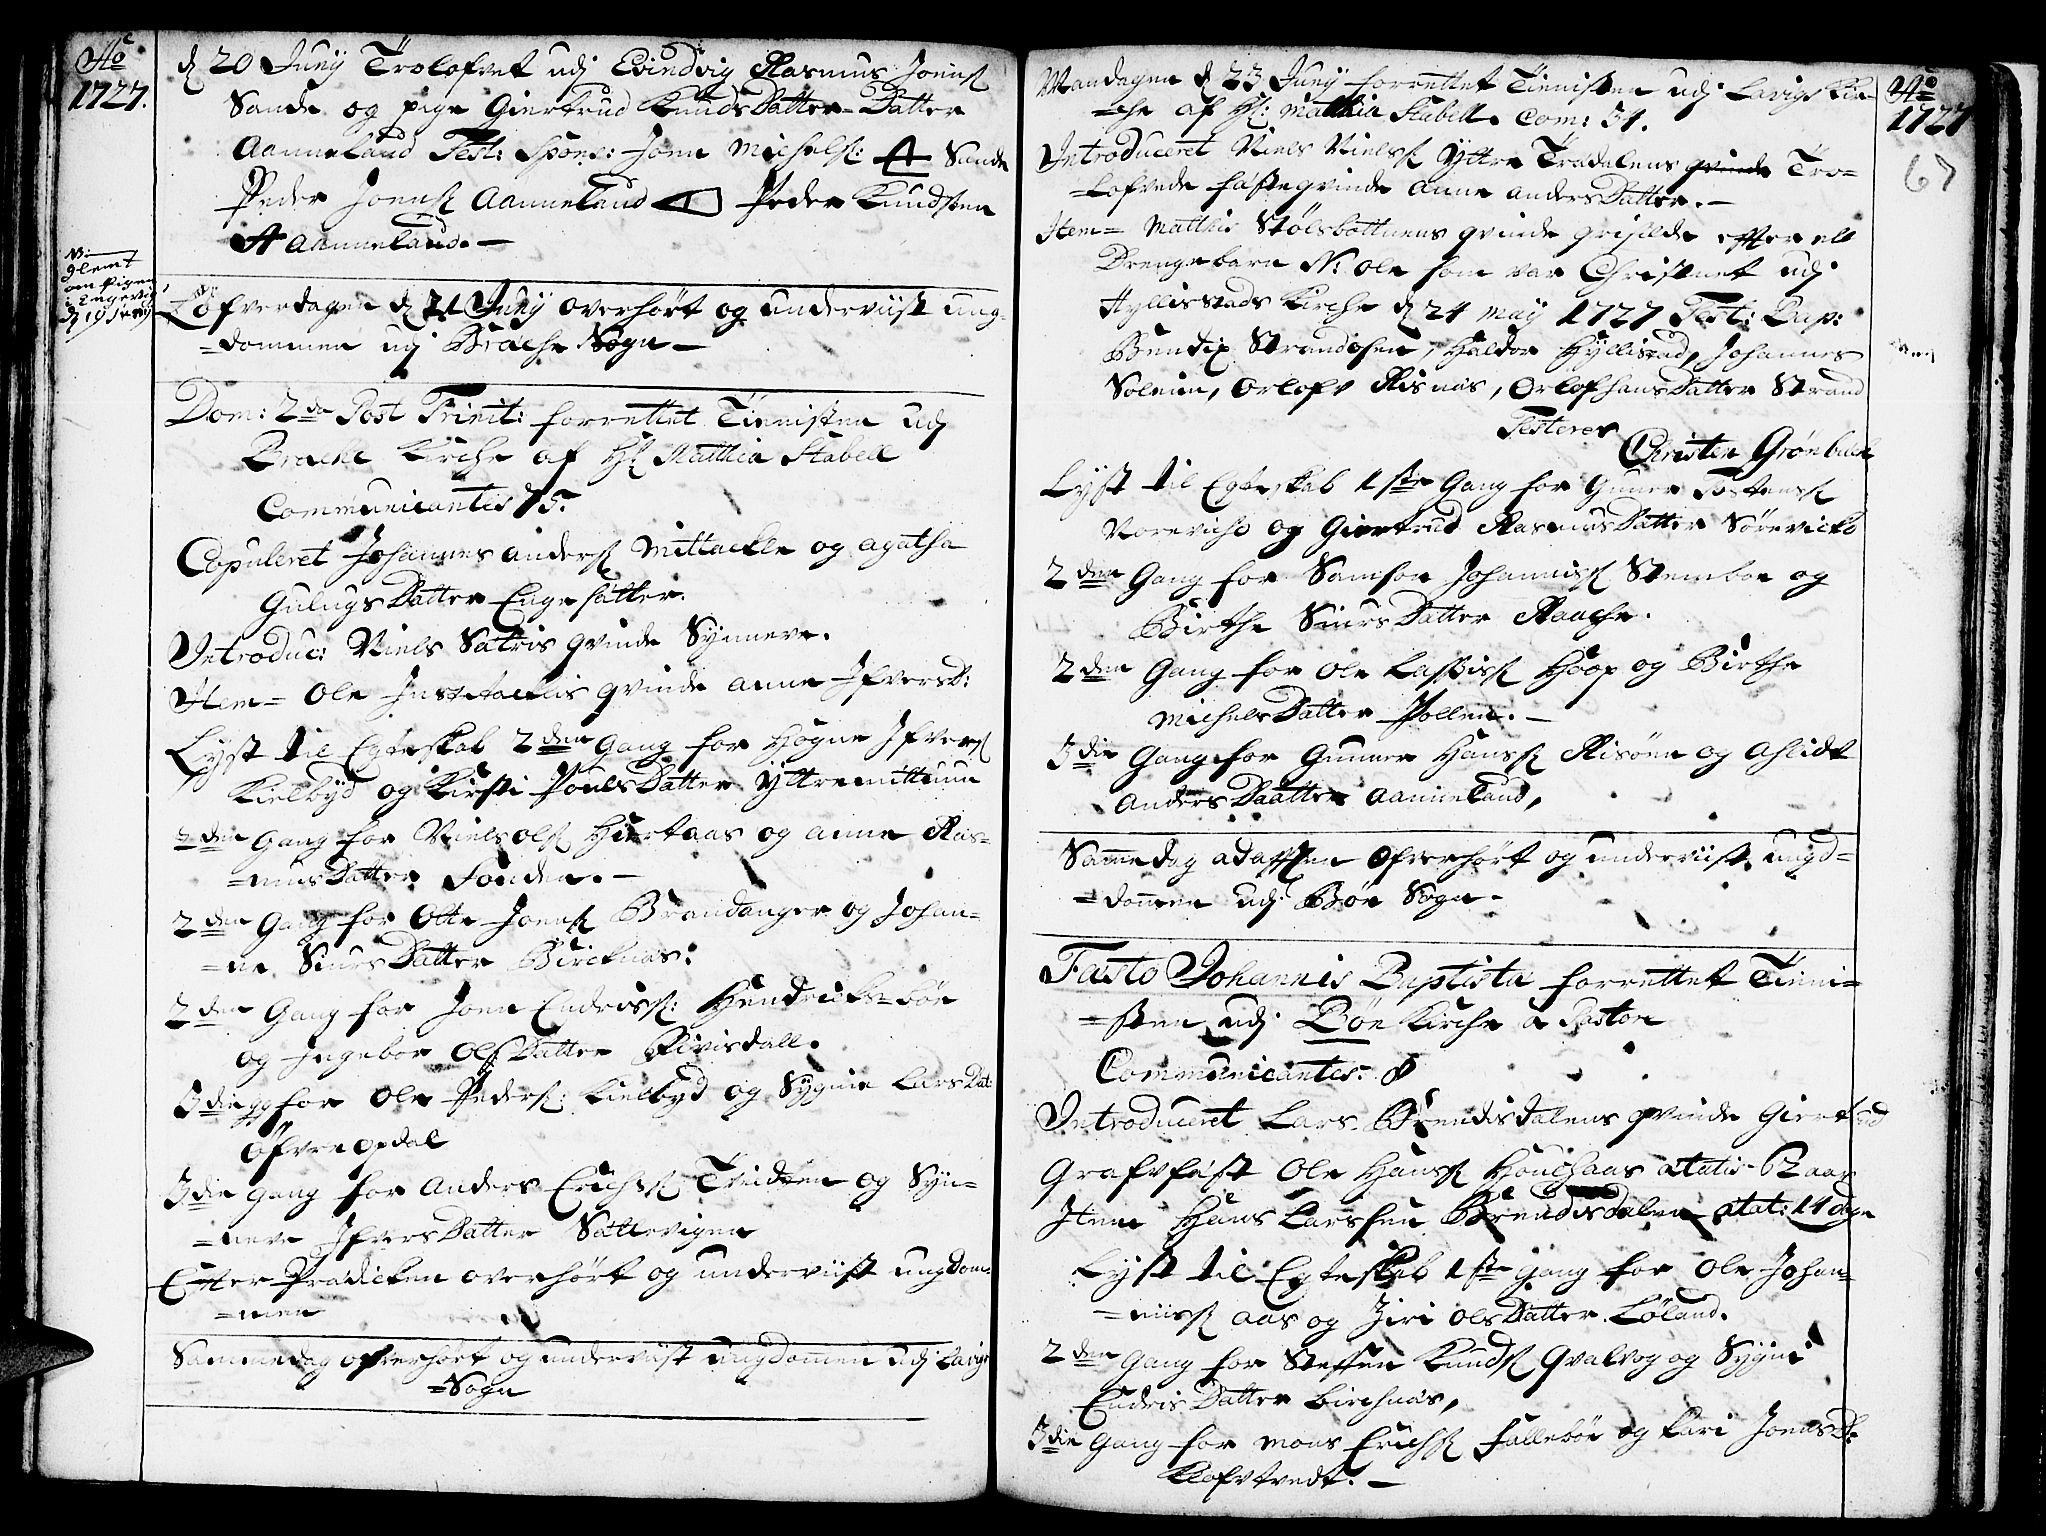 Aõ
1727.
d 20 Junij Trolofvet udj Evindvig Rasmus Joens
Sande og pige Giertrud Knuds Datter Datter
Aanneland Test: Spons: Joen Michels: Sande
Peder Joens Aanneland Peder Knudsen
Aanneland.
NB
glemt
om Pigen
i Engevig
d 19 Junij
Løfverdagen d 21 Junij overhørt og underviist ung-
=dommen udj Bræche Sogn
Dom: 2da Post Trinit: forrettet Tienisten udj
Bræcke Kirche af Hr Matthia Stabell
Communicantes 75.
Copuleret Johannes Anders Mittackle og Agatha
Gulugs Datter Engesætter.
Introduc: Niels Sætris qvinde Synneve.
Item= Ole Instetachis qvinde Anne IfversD:
Lyst til Egteskab 2den Gang for Hogne Ifvers
Kielbyd og Kirsti Pouls Datter Yttre
2den Gang for Niels Ols Hiertaas og Anne Ras=
=mus Datter Sonden.
2den Gang for Otte Joens Brandanger og Johan=
=ne Siurs Datter Bircknæs:
2den Gang for Joen Endris: Hendricksbøe
og Ingebor Ols Datter Rivisdall.
3die gg for Ole Peders: Kielbyd og Sygnie Lars Dat:
Øfvre opdal
3die gang for Anders Erichs Tvidten og Syn=
=neve Ifvers Datter Sættevigen
Efter Prædicken overhørt og underviist ungdom=
=men
Sammedag ofverhørt og underviist ungdommen udj Lavigs
=Sogn
Aõ
1727
67
Mandagen d 23 Junij forrettet Tienisten udj Lavigs Kir=
=che af Hr: Matthia Stabell. Com: 31.
Introduceret Niels Niels Yttre Tradalens qvinde Tro=
=lofvede fæsteqvinde Anne Anders Datter.
Item= Matthis Stølsbottnens qvinde Grisilde efter ett
Drengebarn N: Ole som var Christnet udj
Hyllistads Kirche d 24 May 1727 Test: Bap:
Bendix Strandosen, Haldor Hyllistad, Johannes
Solem, Orlofv Risnæs, Orlof Hans Datter Strand
Testerer
Christen Grønbech
Lyst til Egteskab 1ste Gang for Guner Tostens
Noreviche og Giertrud Rasmus Datter Sørevicke
2den Gang for Samson Johannis Stenboe og
Birthe Siurs Datter Raache.
2den Gang for Ole Lassis Hoop og Birthe
Michels Datter Pollen.
3die Gang for Gunner Hans Risøen og Aslidt
Anders Daatter Aanneland,
Samedag adaften Ofverhørt og underviist ungd=
=domen udj Bøe Sogn.
Fæsto Johannis Baptistæ forrettet Tieni=
=sten udj Bøe Kirche a Pastore
Communicantes: 8
Introduceret Lars Brendisdalens qvinde Giertrud
Grafvfæst Ole Hans Houghaas ætatis 62 aar
Item Hans Larssen Brendisdalen ætat: 11 dage
Lyst til Egteskab 1ste gang for Ole Johan=
=niss Aas og Ziri Ols Datter Løland.
2den Gang for Steffen Knuds Qvalvog og Sygni
Endris Datter Birchnæs,
3die Gang for Mons Erichs Fallebøe og Kari JoensD:
Klofvtvedt.